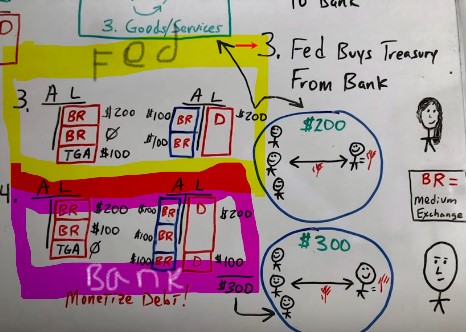 To Bank
D
3. Goods/Services
Fed
3. Fed Buys Treasury
From Bank
3.
A L
A L
BR $200
BR Ø
TGA $100
$100 BR D $200
$100 BR
$200
BR =
medium
Exchange
4.
A L
A L
BR $200
BR $100
TGA Ø
$100 BR D $200
$100 BR
$100 BR D $100
$300
Bank
Monetize Debt!
$300